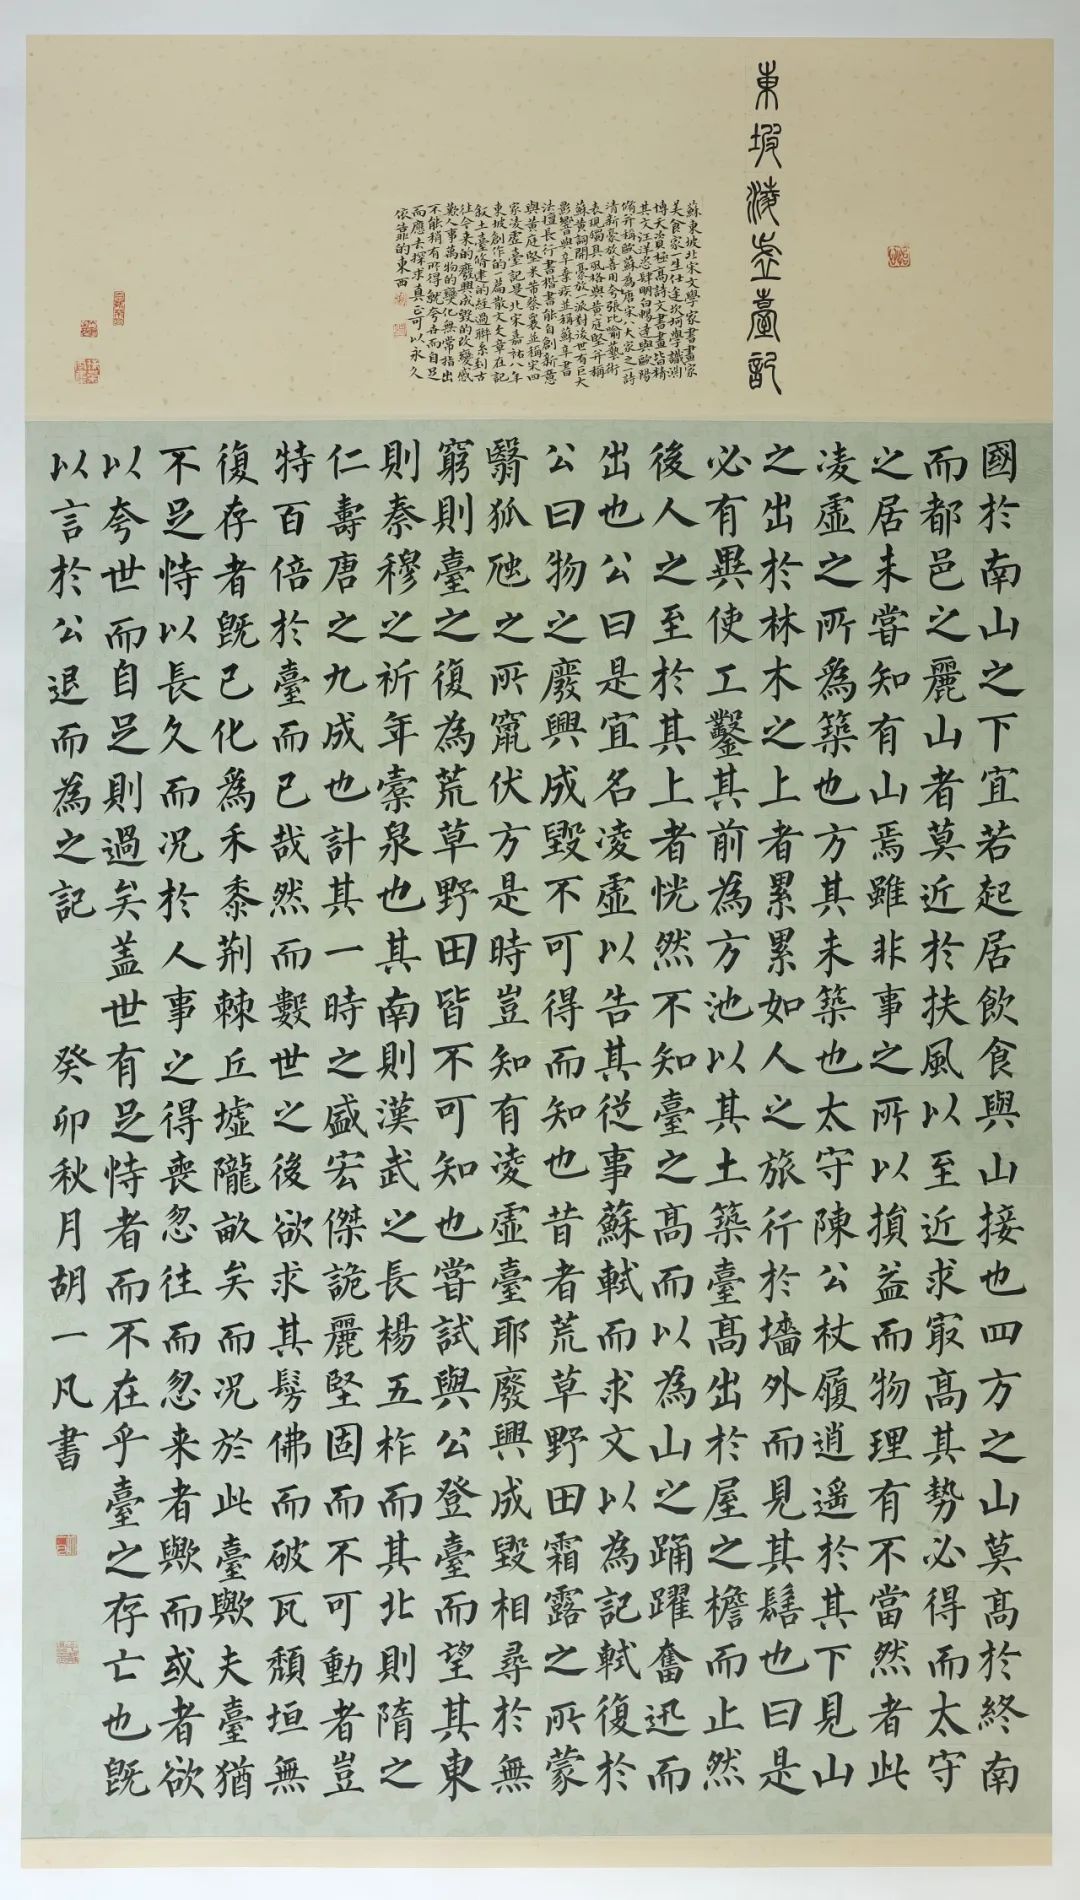 東坡淩虛臺記
蘇東坡北宋文學家書畫家
美食家一生仕途坎坷學識淵
博天資極高詩文書畫皆精
其文汪洋恣肆明白暢達與歐陽
脩并稱歐蘇為唐宋八大家之一詩
清新豪放善用夸張比喻藝術
表現獨具風格與黃庭堅并稱
蘇黃詞開豪放一派對後世有巨大
影響與辛棄疾並稱蘇辛書
法擅長行書楷書能自創新意
與黃庭堅米芾蔡襄並稱宋四
家淩虛臺記是北宋嘉祐八年
東坡創作的一篇散文文章在記
叙土臺脩建的經過聯系到古
往今來的廢興成毀的改變感
歎人事萬物的變化無常指出
不能稍有所得就夸吾而自足
而應去探求真正可以永久
依靠的東西
國於南山之下宜若起居飲食與山接也四方之山莫高於終南
而都邑之麗山者莫近於扶風以至近求㝡高其勢必得而太守
之居未嘗知有山焉雖非事之所以損益而物理有不當然者此
凌虛之所為築也方其未築也太守陳公杖履逍遙於其下見山
之出於林木之上者累累如人之旅行於墻外而見其髻也曰是
必有異使工鑿其前為方池以其土築臺高出於屋之檐而止然
後人之至於其上者恍然不知臺之高而以為山之踊躍奮迅而
出也公曰是宜名凌虛以告其從事蘇軾而求文以為記軾復於
公曰物之廢興成毀不可得而知也昔者荒草野田霜露之所蒙
翳狐虺之所竄伏方是時豈知有凌虛臺耶廢興成毀相尋於無
窮則臺之復為荒草野田皆不可知也嘗試與公登臺而望其東
則秦穆之祈年橐泉也其南則漢武之長楊五柞而其北則隋之
仁壽唐之九成也計其一時之盛宏傑詭麗堅固而不可動者豈
特百倍於臺而已哉然而數世之後欲求其髣佛而破瓦頹垣無
復存者既已化為禾黍荊棘丘墟隴畝矣而況於此臺歟夫臺猶
不足恃以長久而況於人事之得喪忽往而忽来者歟而或者欲
以夸世而自足則過矣蓋世有足恃者而不在乎臺之存亡也既
以言於公退而為之記 癸卯秋月胡一凡書